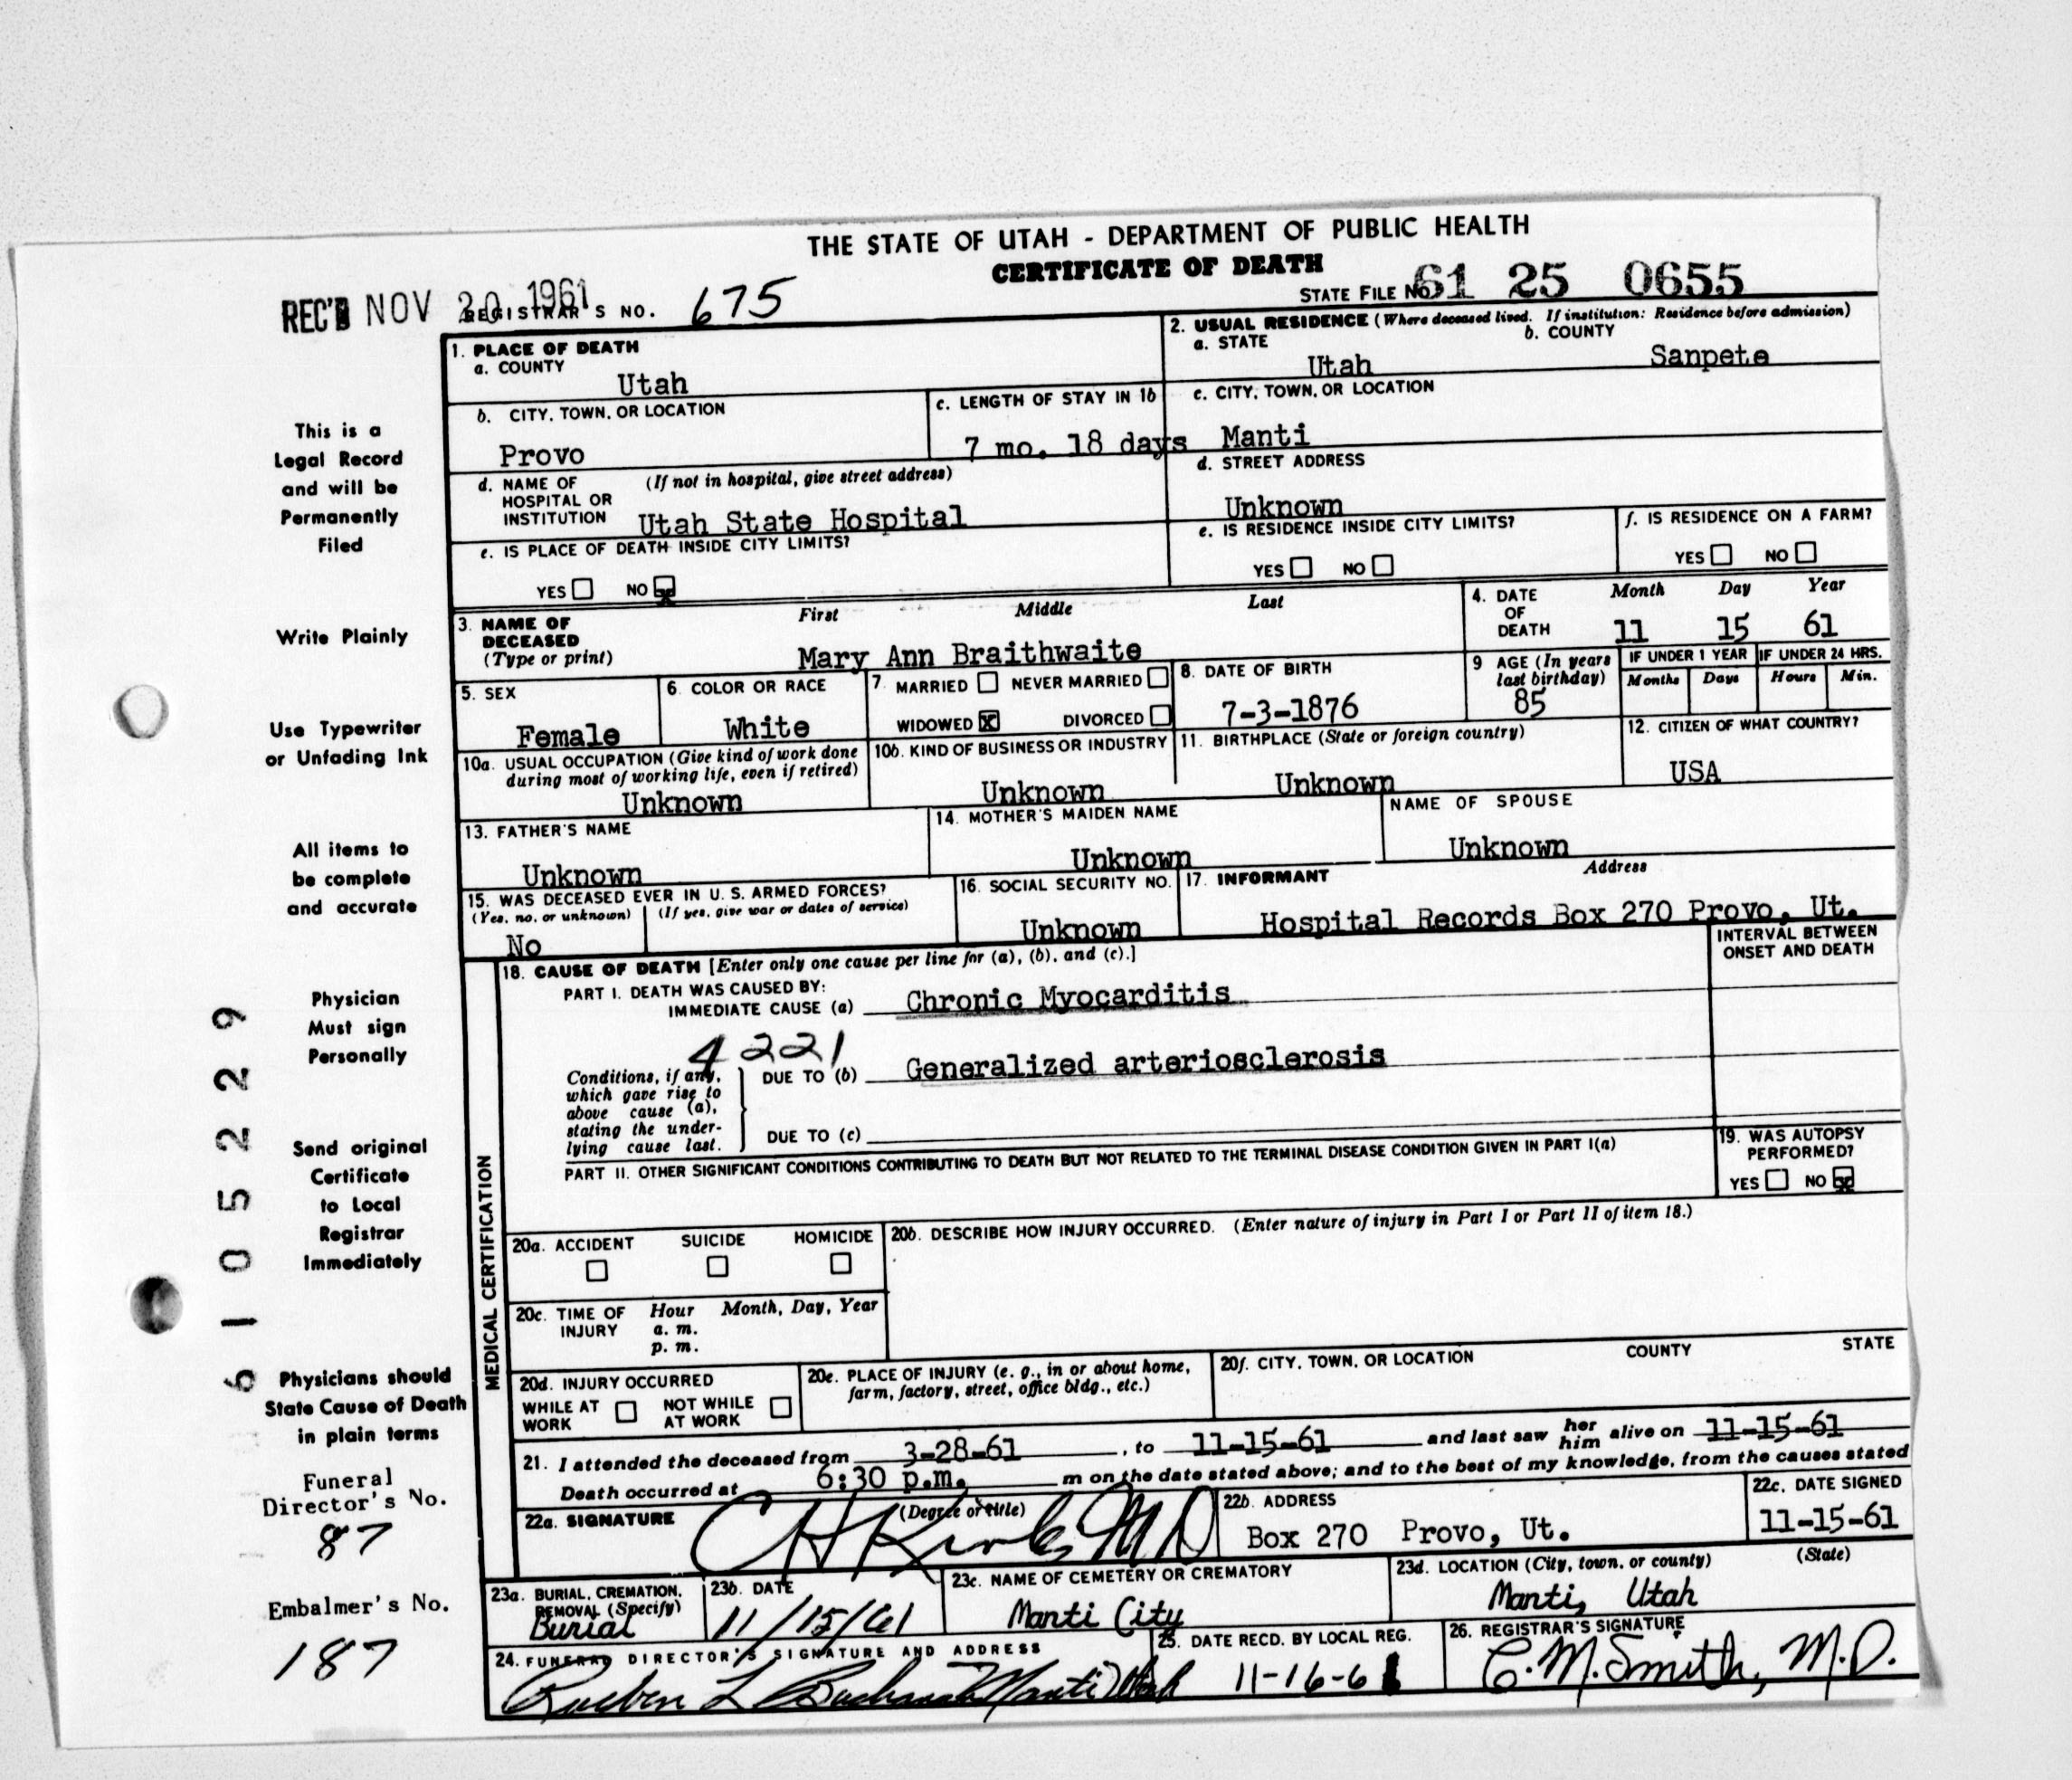 THE STATE OF UTAH - DEPARTMENT OF PUBLIC HEALTH
CERTIFICATE OF DEATH
REC'D NOV 20 1961 REGISTRAR'S NO. 675
STATE FILE NO. 61 25 0655
1. PLACE OF DEATH
a. COUNTY
Utah
2. USUAL RESIDENCE (Where deceased lived. If institution: Residence before admission)
a. STATE
Utah
b. COUNTY
Sanpete
b. CITY, TOWN, OR LOCATION
Provo
c. LENGTH OF STAY IN 1b
7 mo. 18 days
c. CITY, TOWN, OR LOCATION
Manti
d. NAME OF HOSPITAL OR INSTITUTION (If not in hospital, give street address)
Utah State Hospital
d. STREET ADDRESS
Unknown
e. IS PLACE OF DEATH INSIDE CITY LIMITS?
YES NO X
e. IS RESIDENCE INSIDE CITY LIMITS?
YES NO
f. IS RESIDENCE ON A FARM?
YES NO
3. NAME OF DECEASED (Type or print)
First Middle Last
Mary Ann Braithwaite
4. DATE OF DEATH
Month Day Year
11 15 61
5. SEX
Female
6. COLOR OR RACE
White
7. MARRIED NEVER MARRIED
WIDOWED X DIVORCED
8. DATE OF BIRTH
7-3-1876
9 AGE (In years last birthday)
85
IF UNDER 1 YEAR
Months Days
IF UNDER 24 HRS.
Hours Min.
10a. USUAL OCCUPATION (Give kind of work done during most of working life, even if retired)
Unknown
10b. KIND OF BUSINESS OR INDUSTRY
Unknown
11. BIRTHPLACE (State or foreign country)
Unknown
12. CITIZEN OF WHAT COUNTRY?
USA
13. FATHER'S NAME
Unknown
14. MOTHER'S MAIDEN NAME
Unknown
NAME OF SPOUSE
Unknown
15. WAS DECEASED EVER IN U. S. ARMED FORCES?
(Yes, no, or unknown) (If yes, give war or dates of service)
No
16. SOCIAL SECURITY NO.
Unknown
17. INFORMANT Address
Hospital Records Box 270 Provo, Ut.
MEDICAL CERTIFICATION
18. CAUSE OF DEATH [Enter only one cause per line for (a), (b), and (c).]
INTERVAL BETWEEN ONSET AND DEATH
PART I. DEATH WAS CAUSED BY:
IMMEDIATE CAUSE (a) Chronic Myocarditis
4221
Conditions, if any, which gave rise to above cause (a), stating the underlying cause last.
DUE TO (b) Generalized arteriosclerosis
DUE TO (c)
PART II. OTHER SIGNIFICANT CONDITIONS CONTRIBUTING TO DEATH BUT NOT RELATED TO THE TERMINAL DISEASE CONDITION GIVEN IN PART I(a)
19. WAS AUTOPSY PERFORMED?
YES NO X
20a. ACCIDENT SUICIDE HOMICIDE
20b. DESCRIBE HOW INJURY OCCURRED. (Enter nature of injury in Part I or Part II of item 18.)
20c. TIME OF INJURY Hour Month, Day, Year
a. m.
p. m.
20d. INJURY OCCURRED
WHILE AT WORK NOT WHILE AT WORK
20e. PLACE OF INJURY (e. g., in or about home, farm, factory, street, office bldg., etc.)
20f. CITY, TOWN, OR LOCATION COUNTY STATE
21. I attended the deceased from 3-28-61, to 11-15-61 and last saw her him alive on 11-15-61
Death occurred at 6:30 p.m. m on the date stated above; and to the best of my knowledge, from the causes stated
22a. SIGNATURE (Degree or title)
MD
22b. ADDRESS
Box 270 Provo, Ut.
22c. DATE SIGNED
11-15-61
23a. BURIAL, CREMATION, REMOVAL (Specify)
Burial
23b. DATE
11/15/61
23c. NAME OF CEMETERY OR CREMATORY
Manti City
23d. LOCATION (City, town, or county) (State)
Manti, Utah
24. FUNERAL DIRECTOR'S SIGNATURE AND ADDRESS
Manti Utah
25. DATE RECD. BY LOCAL REG.
11-16-61
26. REGISTRAR'S SIGNATURE
C. M. Smith, M.D.
This is a
Legal Record
and will be
Permanently
Filed
Write Plainly
Use Typewriter
or Unfading Ink
All items to
be complete
and accurate
Physician
Must sign
Personally
Send original
Certificate
to Local
Registrar
Immediately
Physicians should
State Cause of Death
in plain terms
Funeral
Director's No.
87
Embalmer's No.
187
61052229